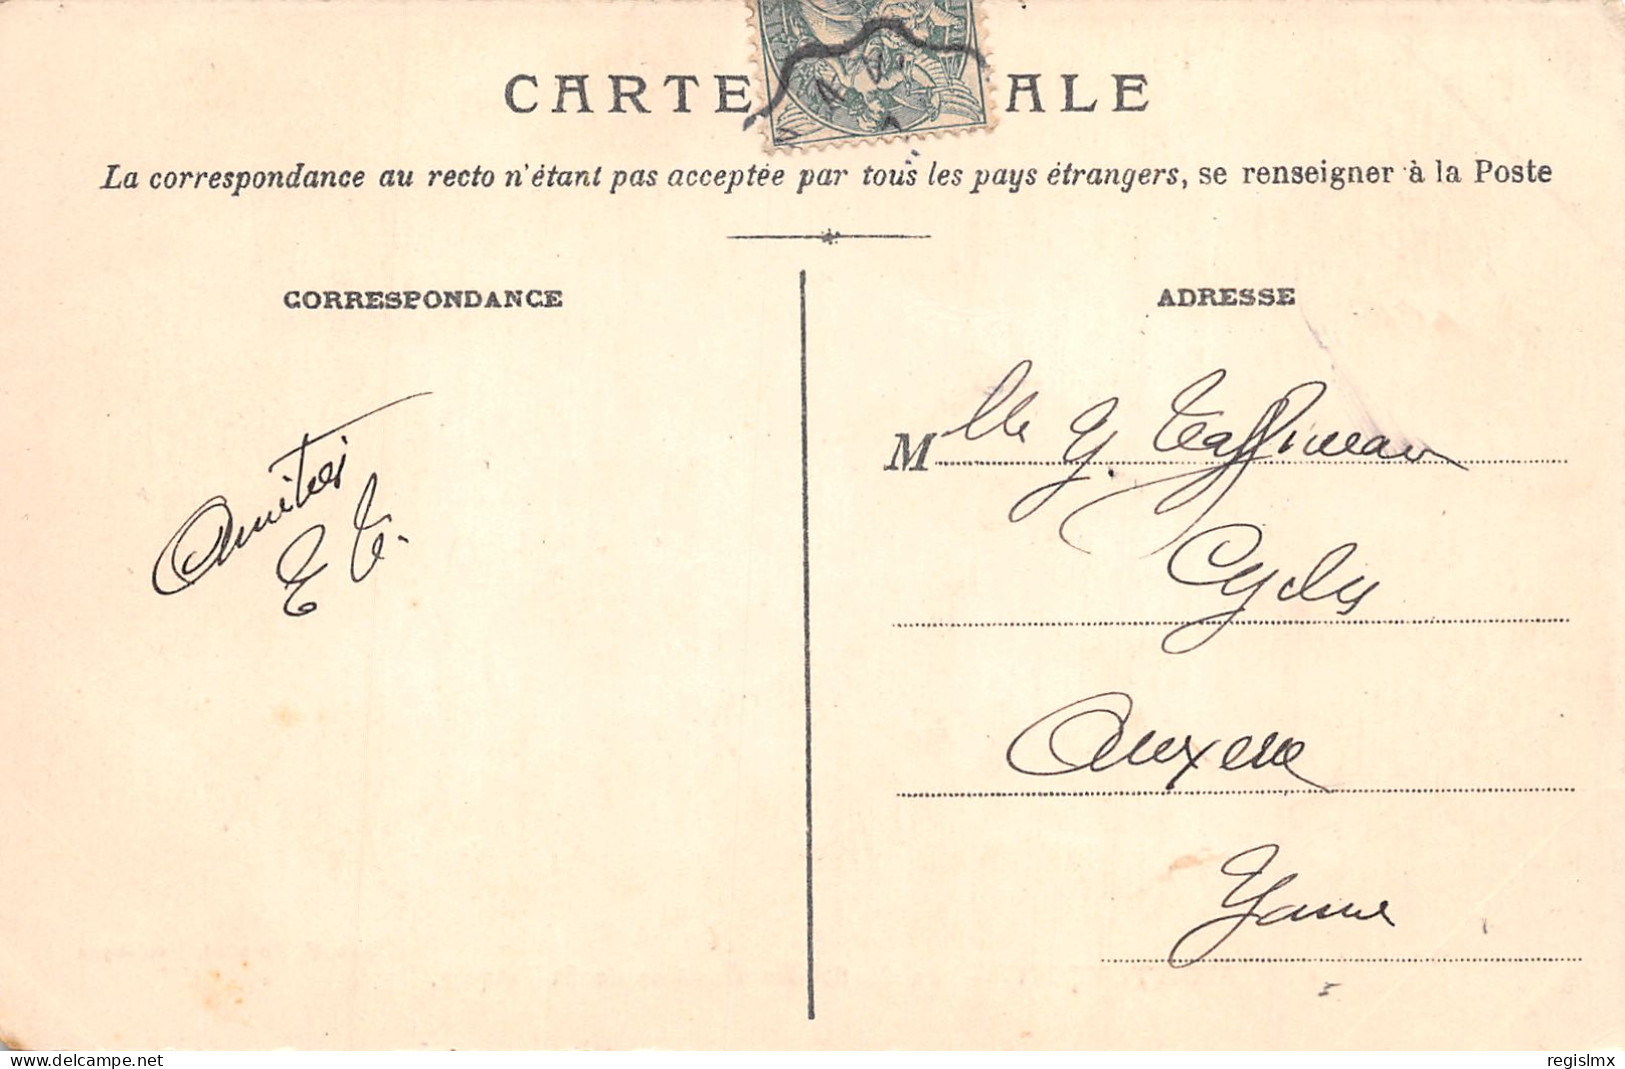 CARTE ALE
La correspondance au recto n'étant pas acceptée par tous les pays étrangers, se renseigner à la Poste
CORRESPONDANCE
ADRESSE
Amitiés
E T.
Mlle G. Taffineau
Cycles
Auxerre
Yonne
www.delcampe.net
regislmx